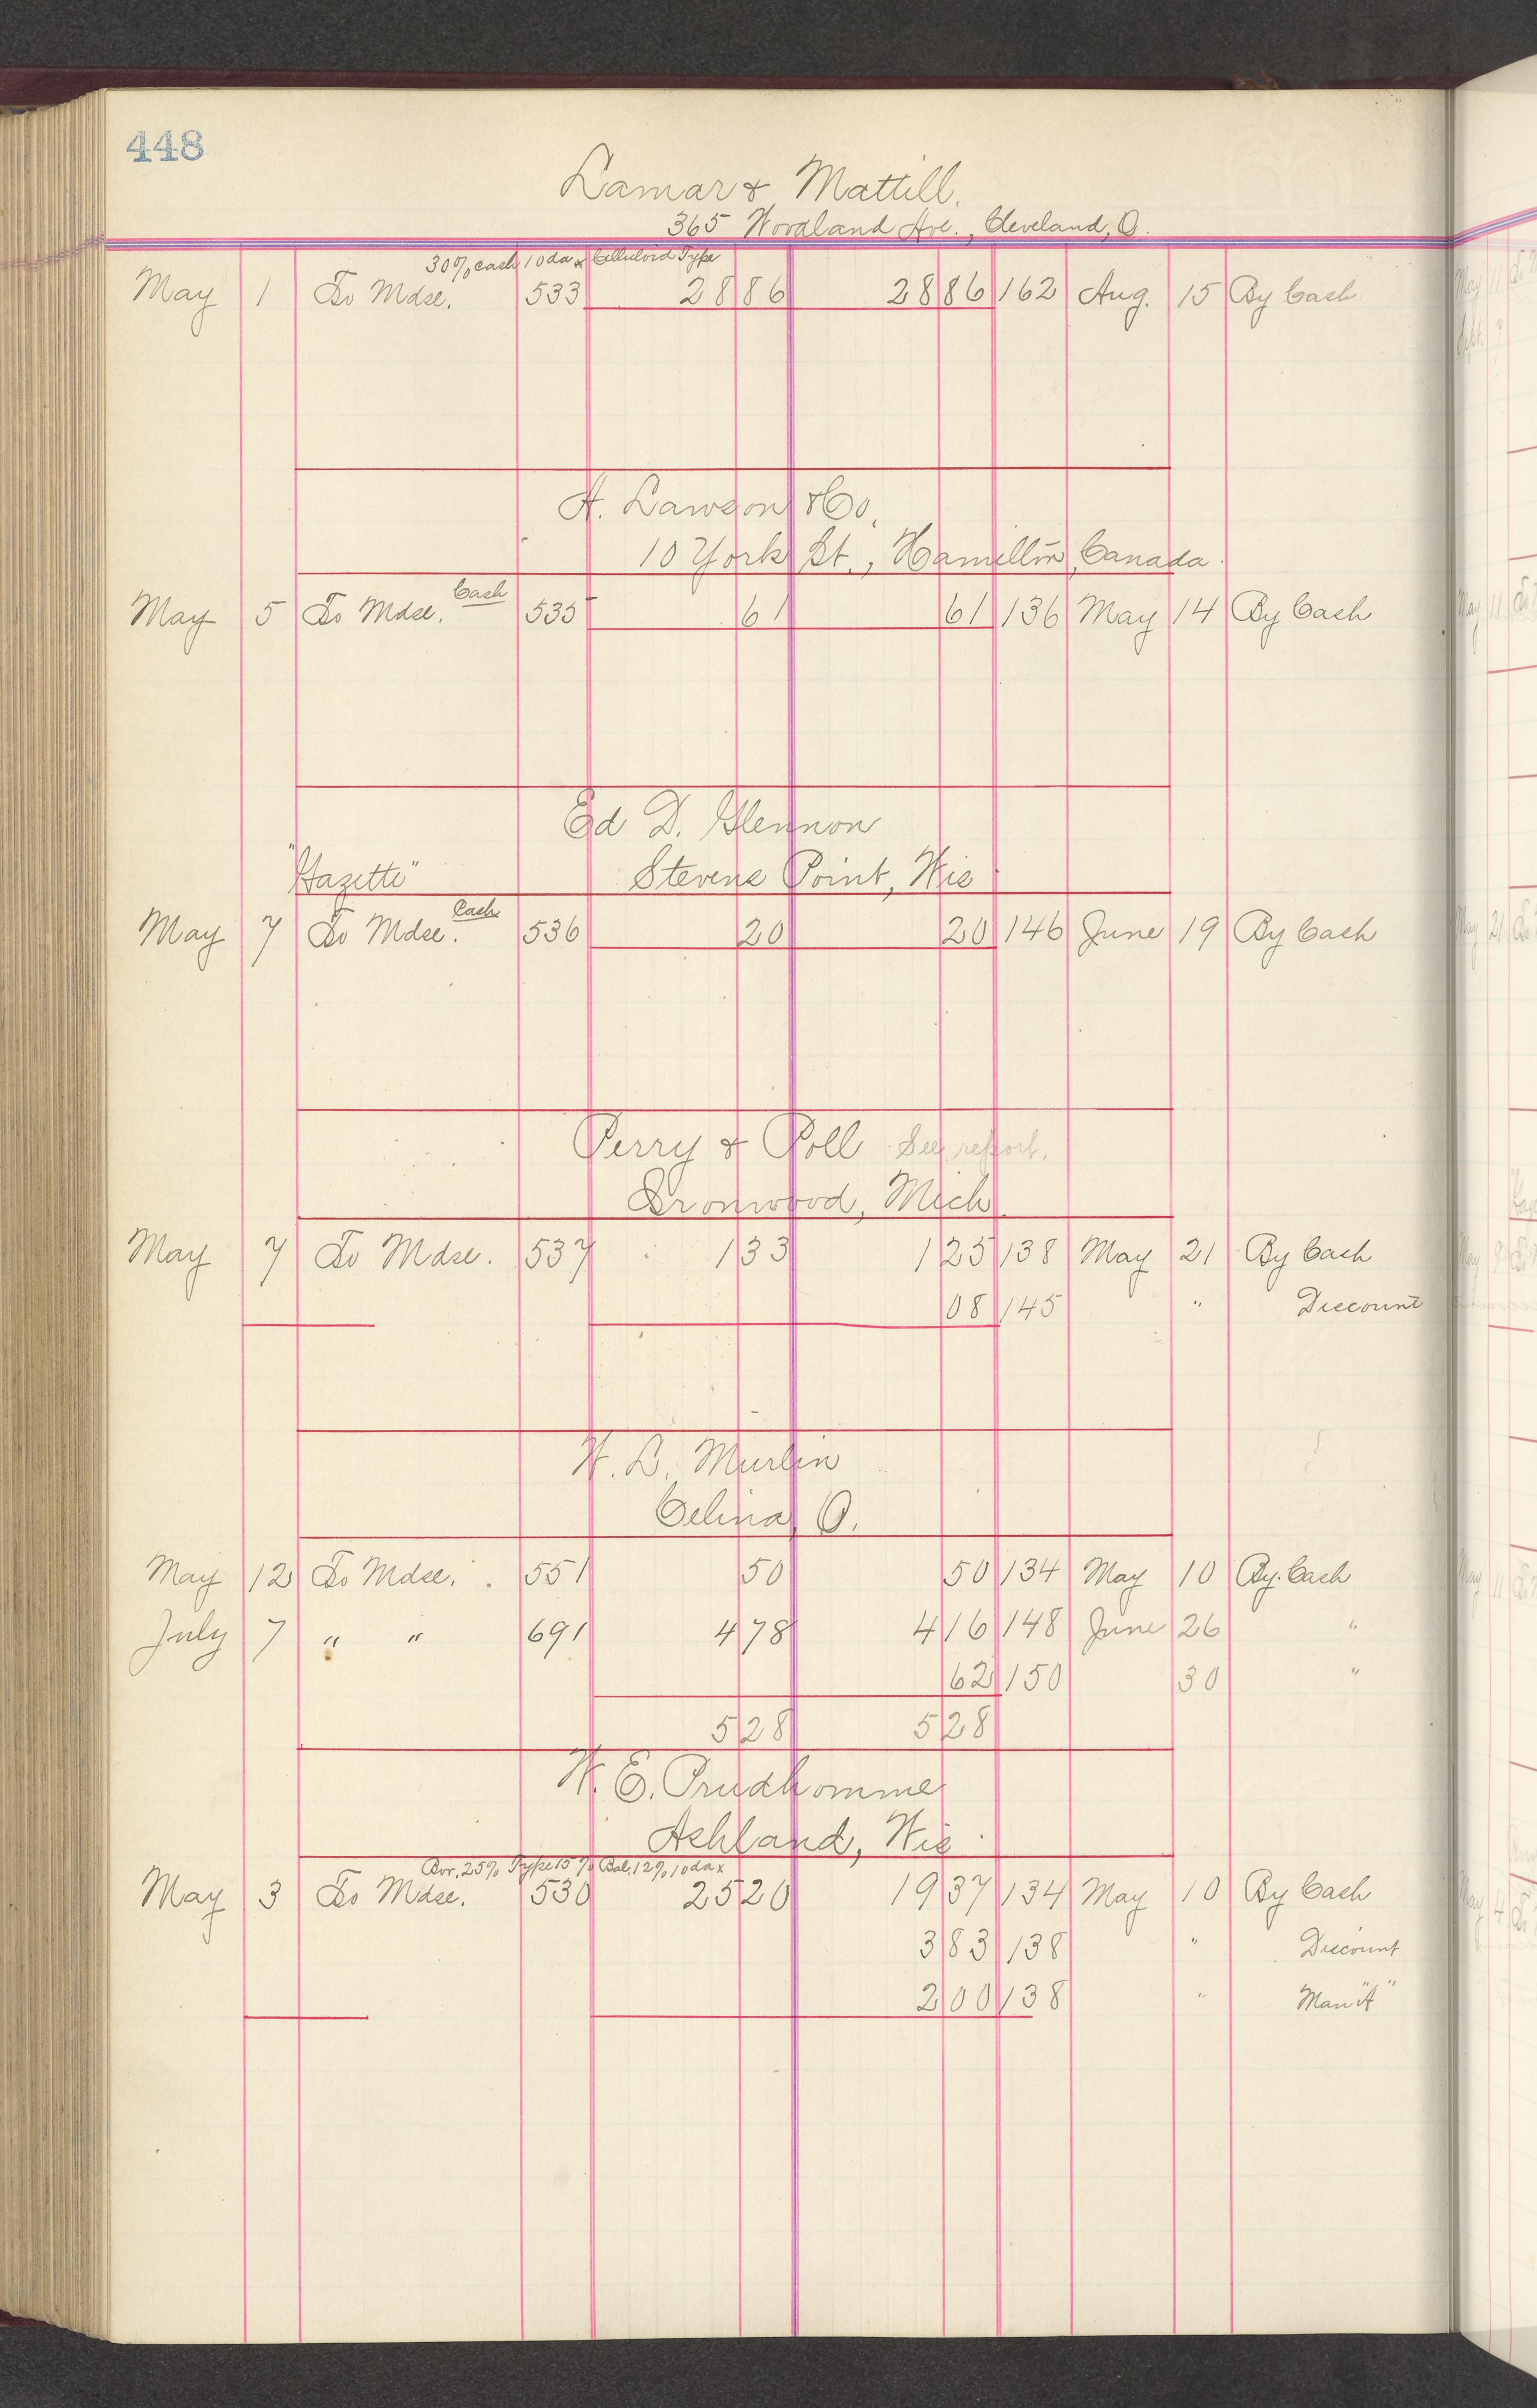 448
Lamar & Mattill.
365 Woodland Ave., Cleveland, O.
30% cash 10 da x Celluloid Type
May 1 To Mdse. 533 28 86 28 86 162 Aug. 15 By Cash
A. Lawson & Co.
10 York St., Hamilton, Canada.
Cash
May 5 To Mdse. 535 61 61 136 May 14 By Cash
Ed D. Glennon
"Gazette" Stevens Point, Wis
Cash
May 7 To Mdse. 536 20 20 146 June 19 By Cash
Perry & Poll See report.
Ironwood, Mich.
May 7 To Mdse. 537 1 33 1 25 138 May 21 By Cash
08 145 " Discount
W. D. Murlin
Celina, O.
May 12 To Mdse. 551 50 50 134 May 10 By Cash
July 7 " " 691 4 78 4 16 148 June 26 "
62 150 30 "
5 28 5 28
W. E. Prudhomme
Ashland, Wis.
Bor. 25% Type 15% Bal. 12% 10 da x
May 3 To Mdse. 530 25 20 19 37 134 May 10 By Cash
3 83 138 " Discount
2 00 138 "